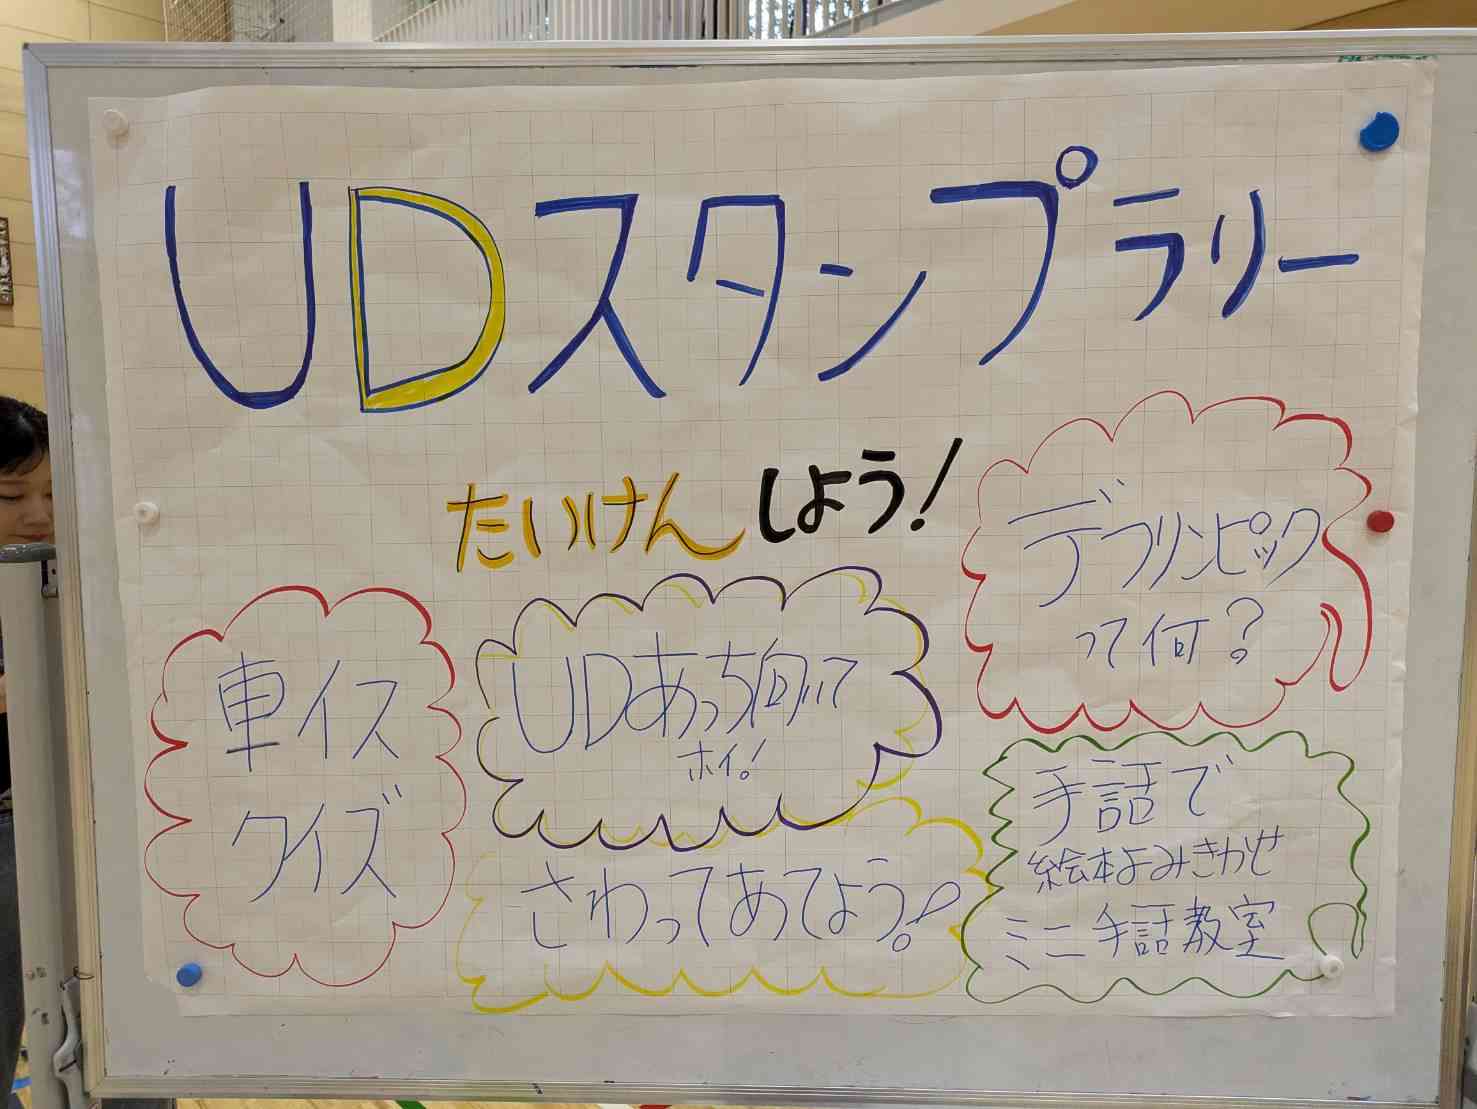 UDスタンプラリー
たいけんしよう!
デフリンピック
って何?
車イス
クイズ
UDあっち向いて
ホイ!
さわってあてよう!
手話で
絵本よみきかせ
ミニ手話教室